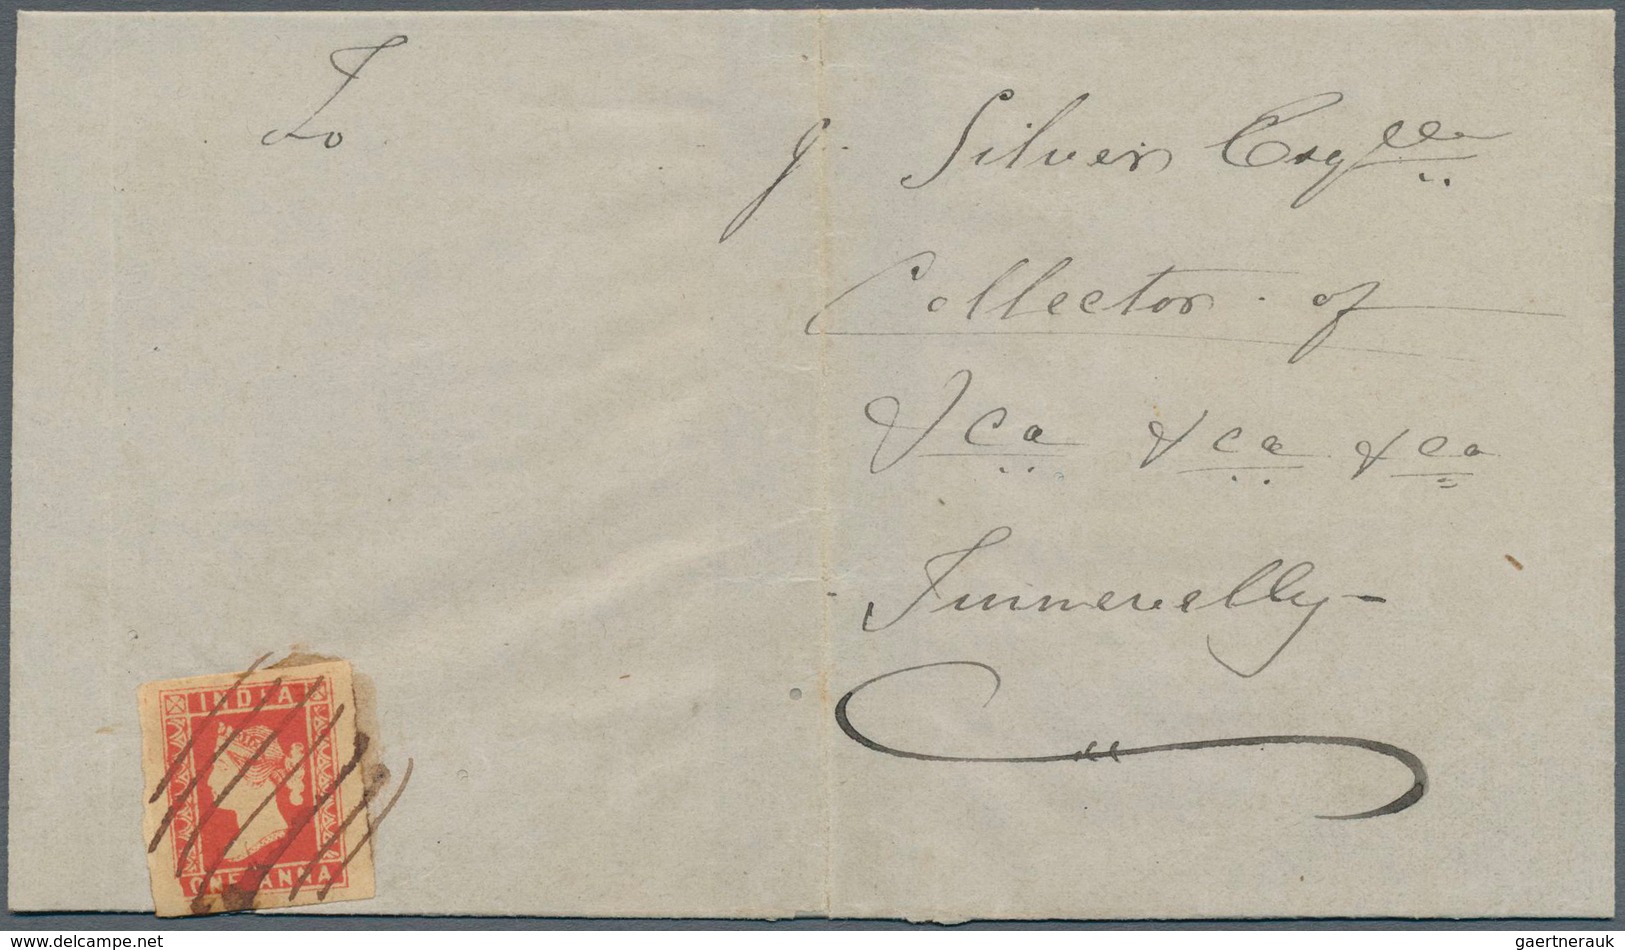 To
J. Silver Esqre
Collector of
&ca &ca &ca
Tinnevelly -
INDIA
ONE ANNA
delcampe.net
gaertnerauk